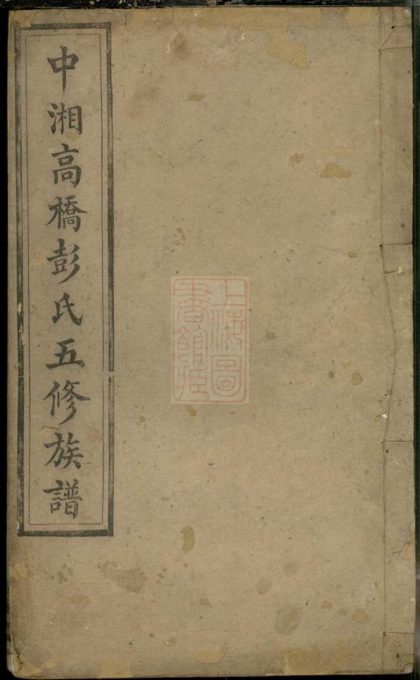 中湘高橋彭氏五修族譜
上海圖
書館藏